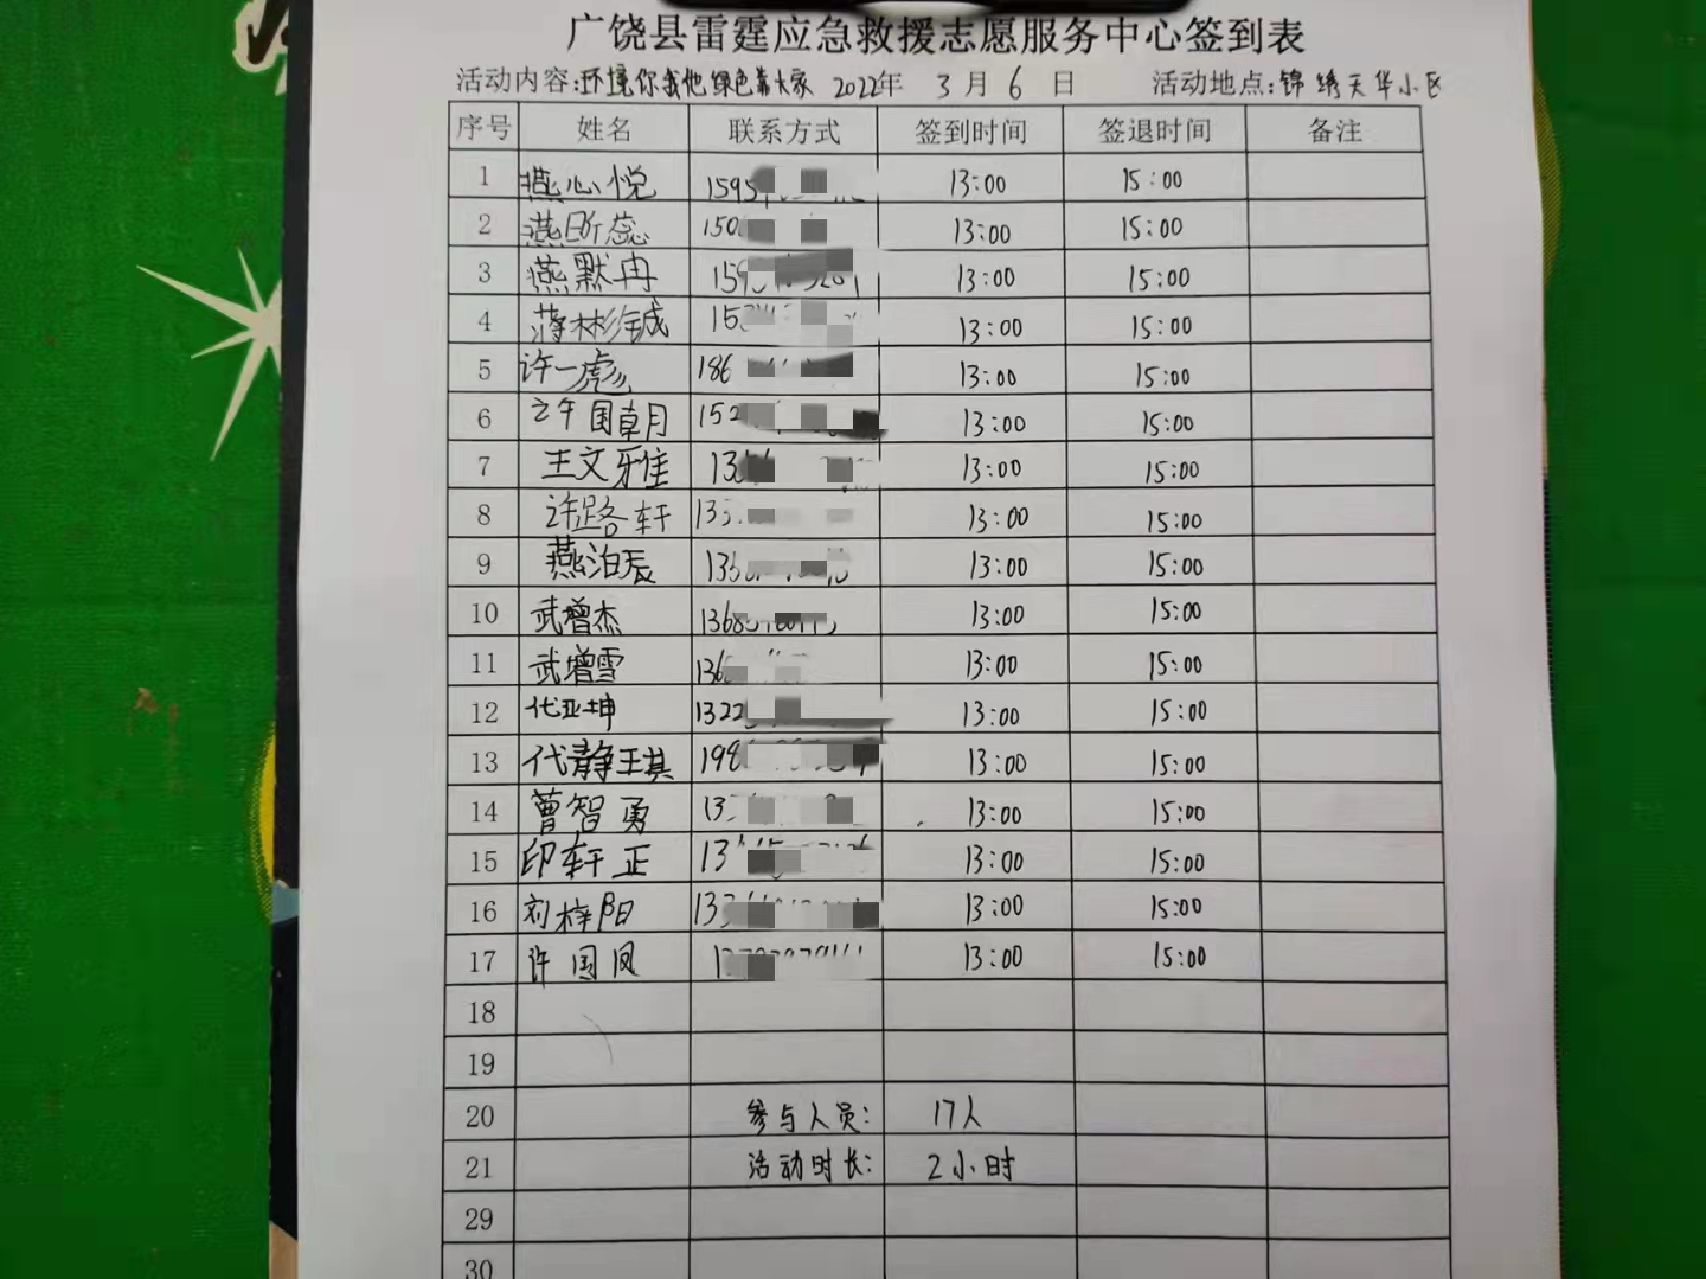 广饶县雷霆应急救援志愿服务中心签到表
活动内容:环境你我他绿色靠大家 2022年 3月6日 活动地点:锦绣天华小区
序号 姓名 联系方式 签到时间 签退时间 备注
1 燕心悦 1595 13:00 15:00
2 燕昕蕊 150 13:00 15:00
3 燕默冉 159 13:00 15:00
4 蒋彬铖 15 13:00 15:00
5 许一彪 186 13:00 15:00
6 国朝 152 13:00 15:00
7 王文雅 13 13:00 15:00
8 许路轩 13 13:00 15:00
9 燕泊辰 13 13:00 15:00
10 武增杰 1368 13:00 15:00
11 武增雪 136 13:00 15:00
12 代亚坤 1322 13:00 15:00
13 代静琪 198 13:00 15:00
14 曹智勇 13 13:00 15:00
15 印轩正 13 13:00 15:00
16 刘梓阳 133 13:00 15:00
17 许国凤 1 13:00 15:00
18
19
20 参与人员: 17人
21 活动时长: 2小时
29
30